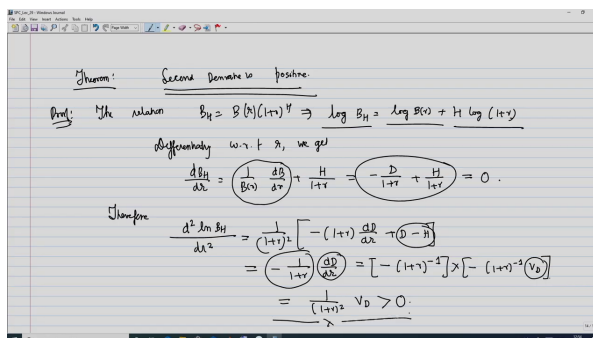 SPC_Lec_29 - Windows Journal
File Edit View Insert Actions Tools Help
Page Width
Theorem: Second Derivative is positive.
Proof: The relation B_H = B(r)(1+r)^H ⇒ log B_H = log B(r) + H log (1+r)
Differentiating w.r.t r, we get
dB_H/dr = 1/B(r) dB/dr + H/1+r = - D/1+r + H/1+r = 0.
Therefore
d² ln B_H/dr² = 1/(1+r)² [ -(1+r) dD/dr + D - H ]
= - 1/1+r dD/dr = [ -(1+r)^-1 ] × [ -(1+r)^-1 V_D ]
= 1/(1+r)² V_D > 0.